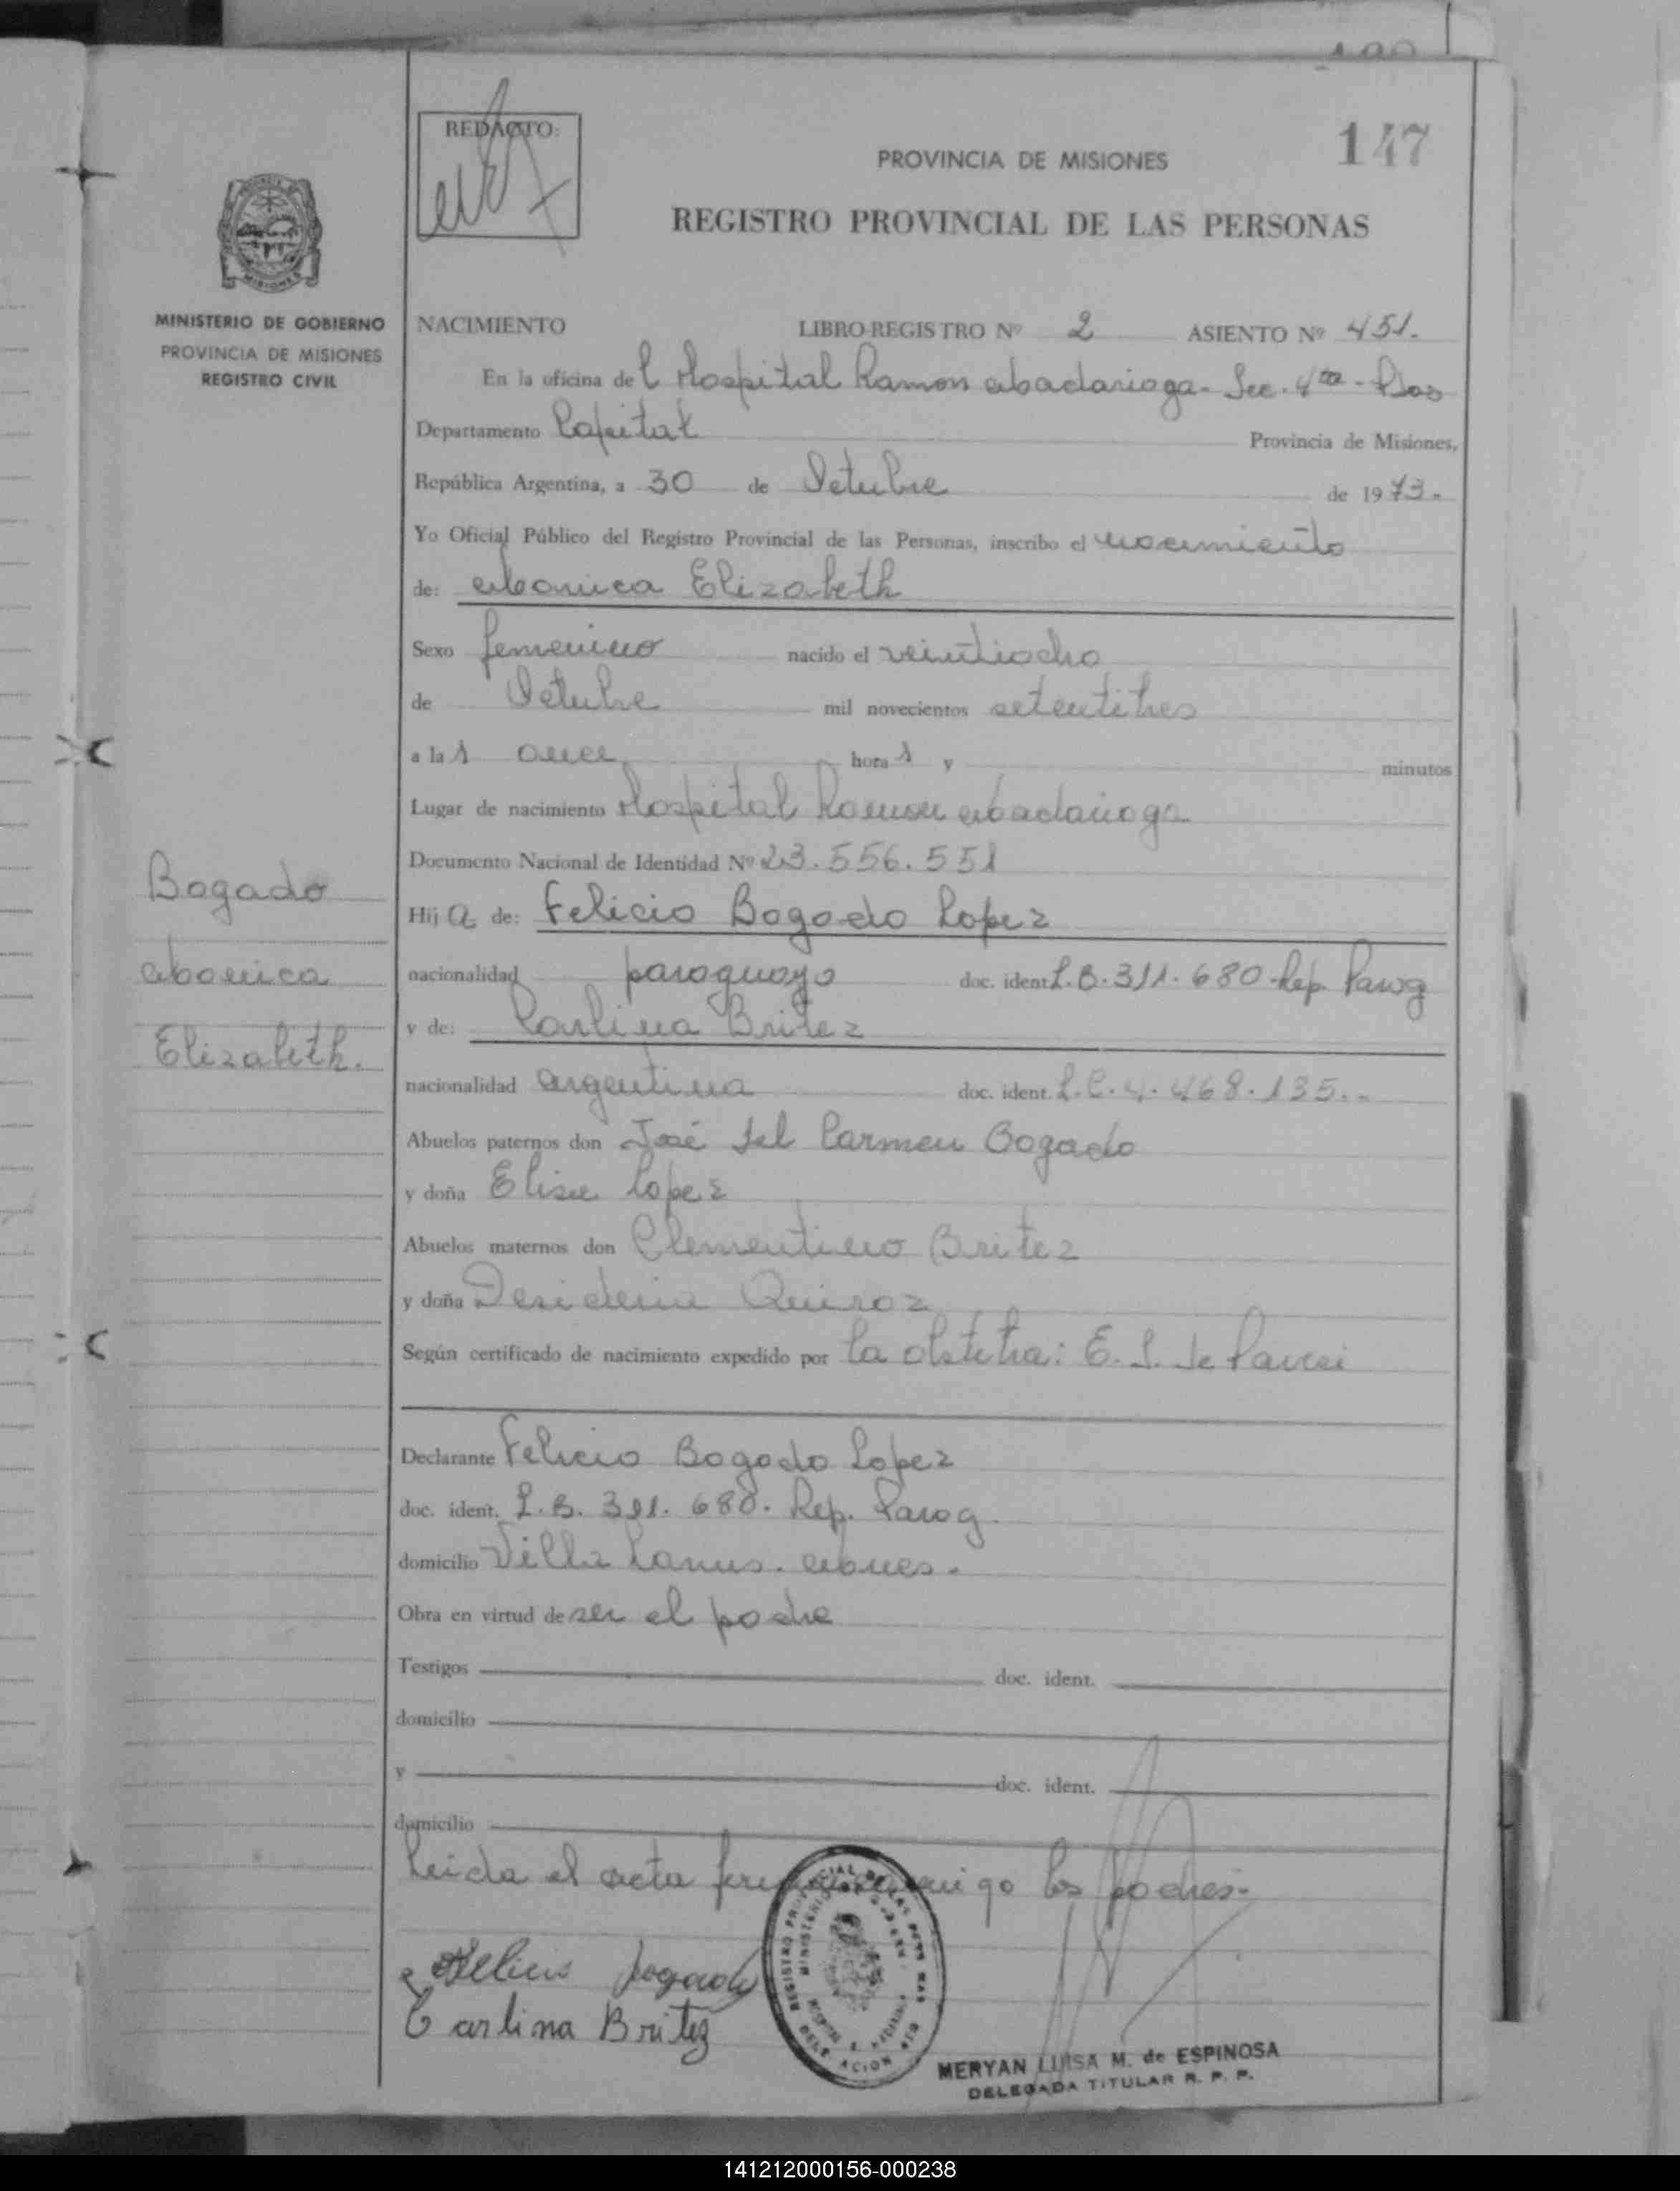 147
REDACTO:
PROVINCIA DE MISIONES
REGISTRO PROVINCIAL DE LAS PERSONAS
MINISTERIO DE GOBIERNO
PROVINCIA DE MISIONES
REGISTRO CIVIL
NACIMIENTO LIBRO-REGISTRO Nº 2 ASIENTO Nº 451.
En la oficina del Hospital Ramon Madariaga - Sec. 4ta - Pdas
Departamento Capital Provincia de Misiones,
República Argentina, a 30 de Octubre de 1973.-
Yo Oficial Público del Registro Provincial de las Personas, inscribo el nacimiento
de: Monica Elizabeth
Sexo femenino nacido el veintiocho
de Octubre mil novecientos setentitres
a las once horas y minutos
Lugar de nacimiento Hospital Ramon Madariaga
Documento Nacional de Identidad Nº 23.556.551
Bogado
Monica
Elizabeth.
Hija de: Felicio Bogado Lopez
nacionalidad paraguayo doc. ident. L.B. 311.680 Rep. Parag
y de: Carlina Britez
nacionalidad argentina doc. ident. L.C. 4.468.135.-
Abuelos paternos don José del Carmen Bogado
y doña Elisa Lopez
Abuelos maternos don Clementino Britez
y doña Desideria Quiroz
Según certificado de nacimiento expedido por la obstetra: E. S. de
Declarante Felicio Bogado Lopez
doc. ident. L.B. 311.680. Rep. Parag.
domicilio Villa Lanus. Mnes.
Obra en virtud de ser el padre
Testigos doc. ident.
domicilio
y doc. ident.
domicilio
Leida el acta firman conmigo los padres-
Felicio Bogado
Carlina Britez
MERYAN LUISA M. de ESPINOSA
DELEGADA TITULAR R. P. P.
141212000156-000238